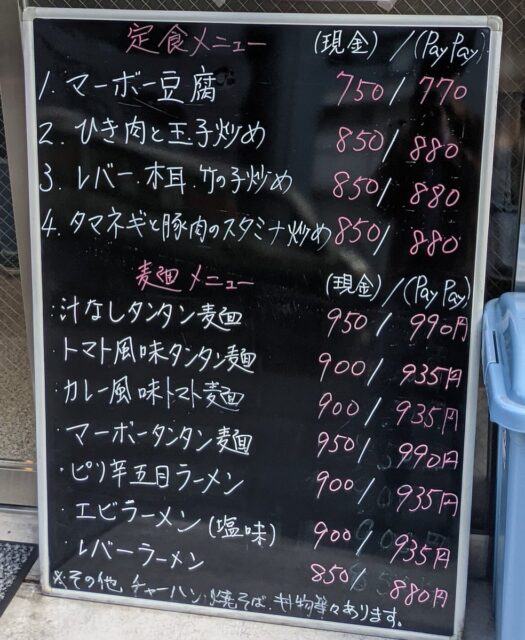 定食メニュー (現金)/(PayPay)
1. マーボー豆腐 750/770
2. ひき肉と玉子炒め 850/880
3. レバー.木耳.竹の子炒め 850/880
4. タマネギと豚肉のスタミナ炒め 850/880
麺メニュー (現金)/(PayPay)
・汁なしタンタン麺 950/990円
トマト風味タンタン麺 900/935円
・カレー風味トマト麺 900/935円
・マーボータンタン麺 950/990円
・ピリ辛五目ラーメン 900/935円
・エビラーメン(塩味) 900/935円
・レバーラーメン 850/880円
※その他 チャーハン・焼そば・丼物等々あります。